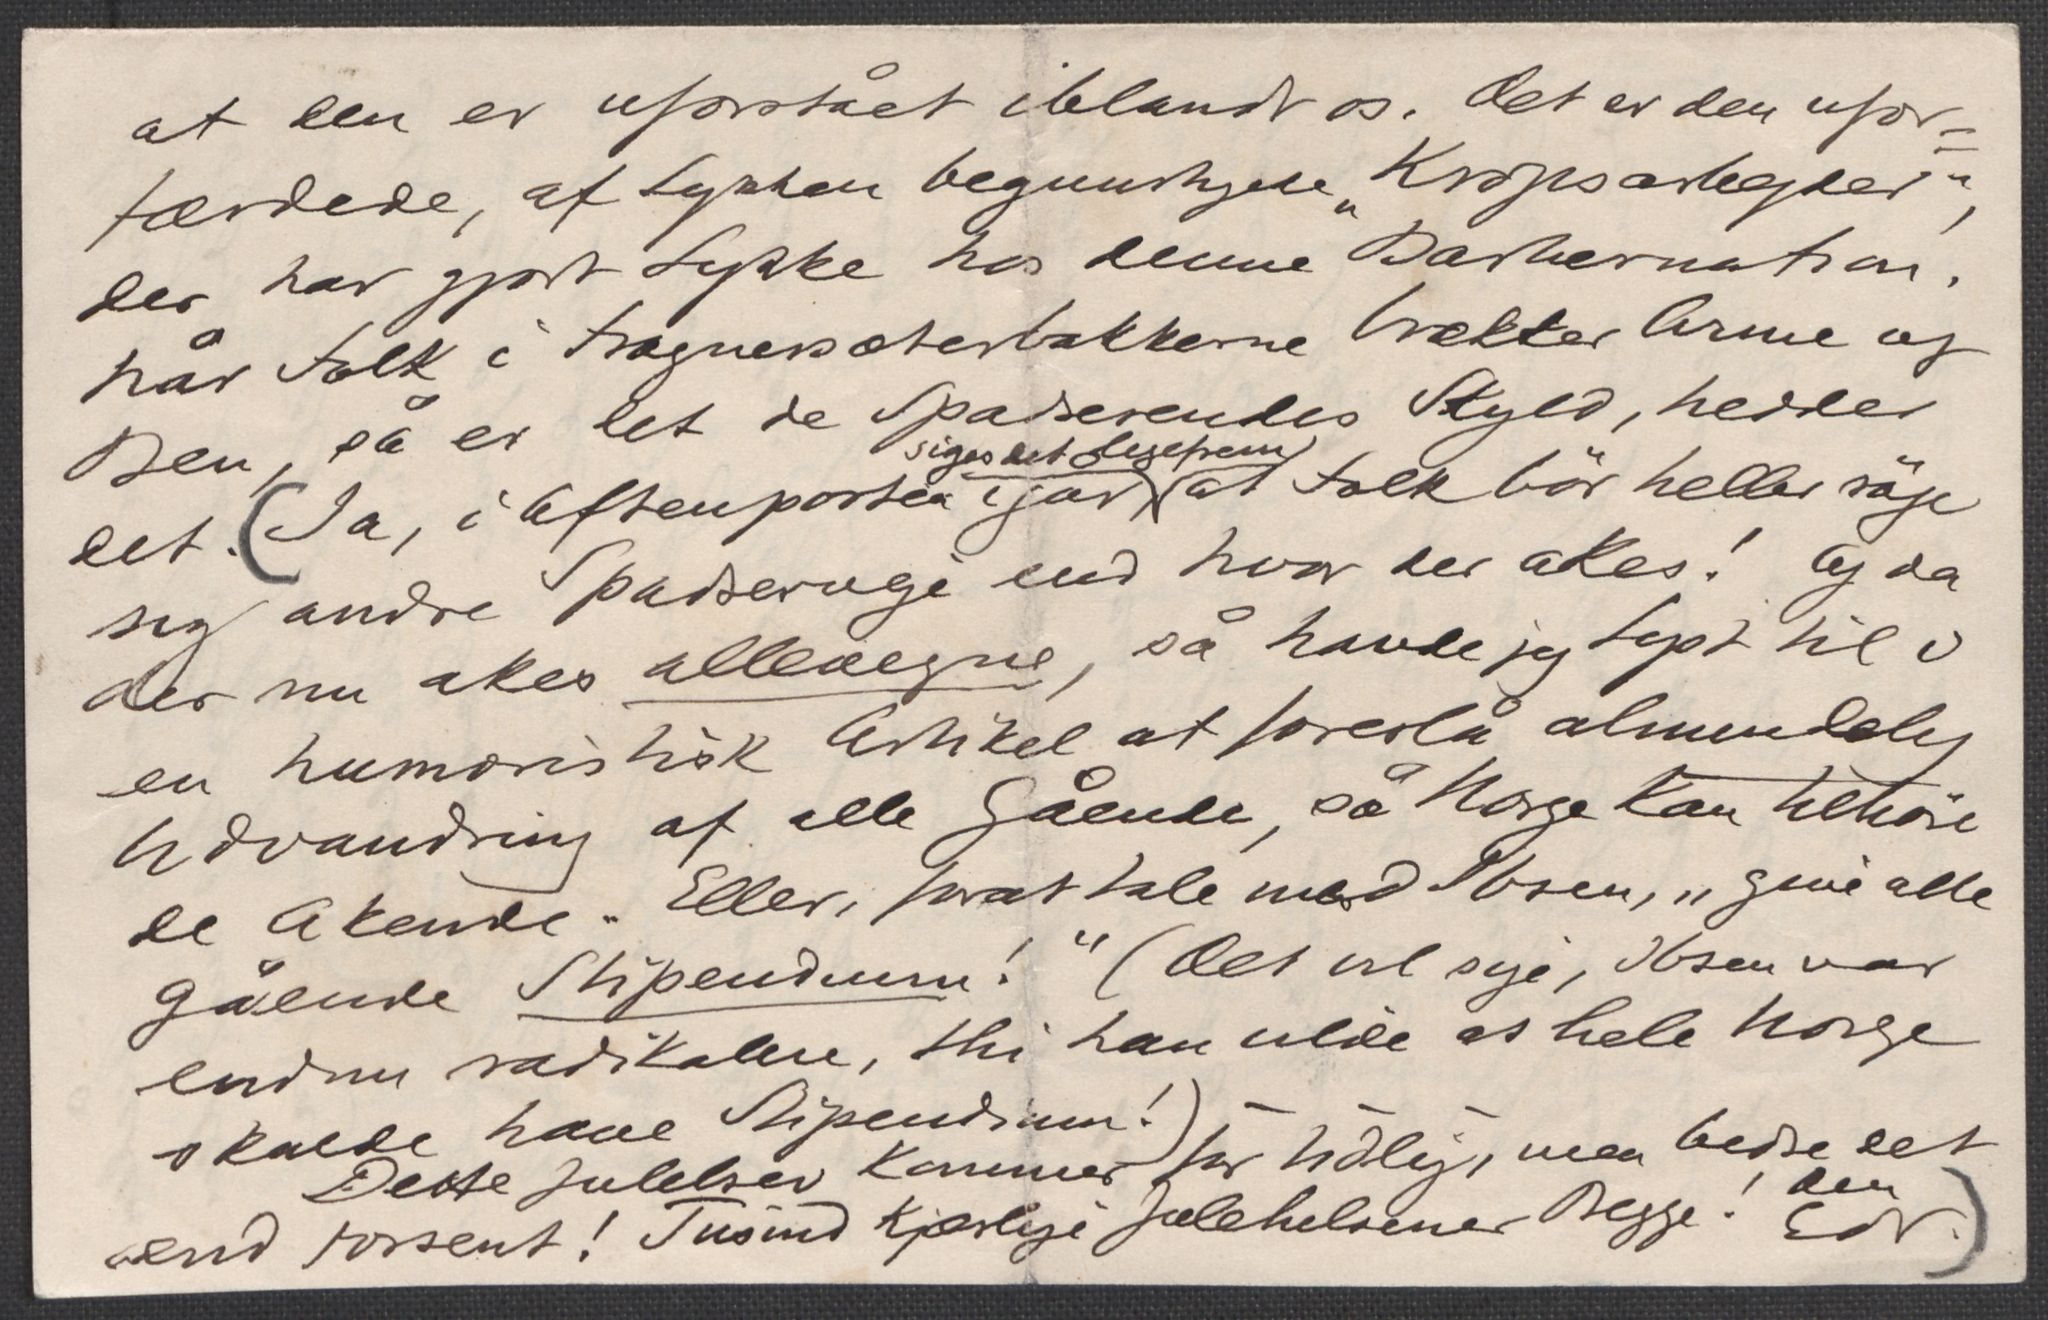 at den er uforstået iblandt os. Det er den ufor=
færdede, af Lykken begunstigede „Kropsarbejder",
der har gjort Lykke hos denne Barbernation.
Når Folk i Frognersæterbakkerne brækker Arme og
Ben, så er det de Spadserendes Skyld, hedder
det. (Ja, i Aftenposten igår siges det ligefrem, at Folk bör heller söge
sig andre Spadserveje end hvor der akes! Og da
der nu akes allevegne, så havde jeg Lyst til i
en humoristisk Artikel at foreslå almindelig
Udvandring af alle Gående, så Norge kan tilhöre
de Akende. Eller, for at tale med Ibsen, „give alle
gående Stipendium!" (Det vil sige, Ibsen var
endnu radikalere, thi han vilde at hele Norge
skulde have Stipendium!)
Dette Julebrev kommer for tidlig, men bedre det
end forsent! Tusind kjærlige Julehilsener Begge! Din
EdV.)